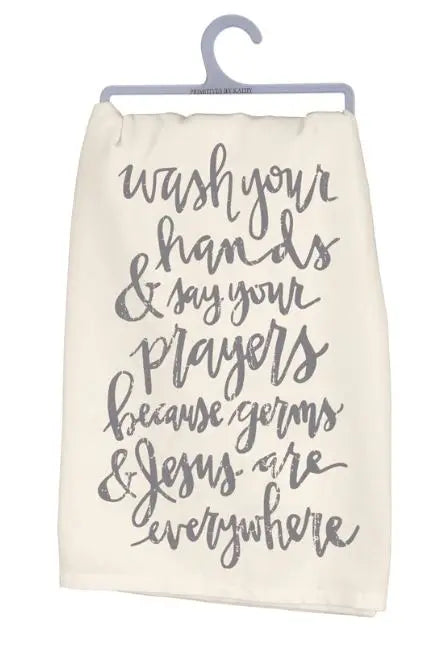 PRIMITIVES BY KATHY
wash your
hands
& say your
prayers
because germs
& Jesus are
everywhere